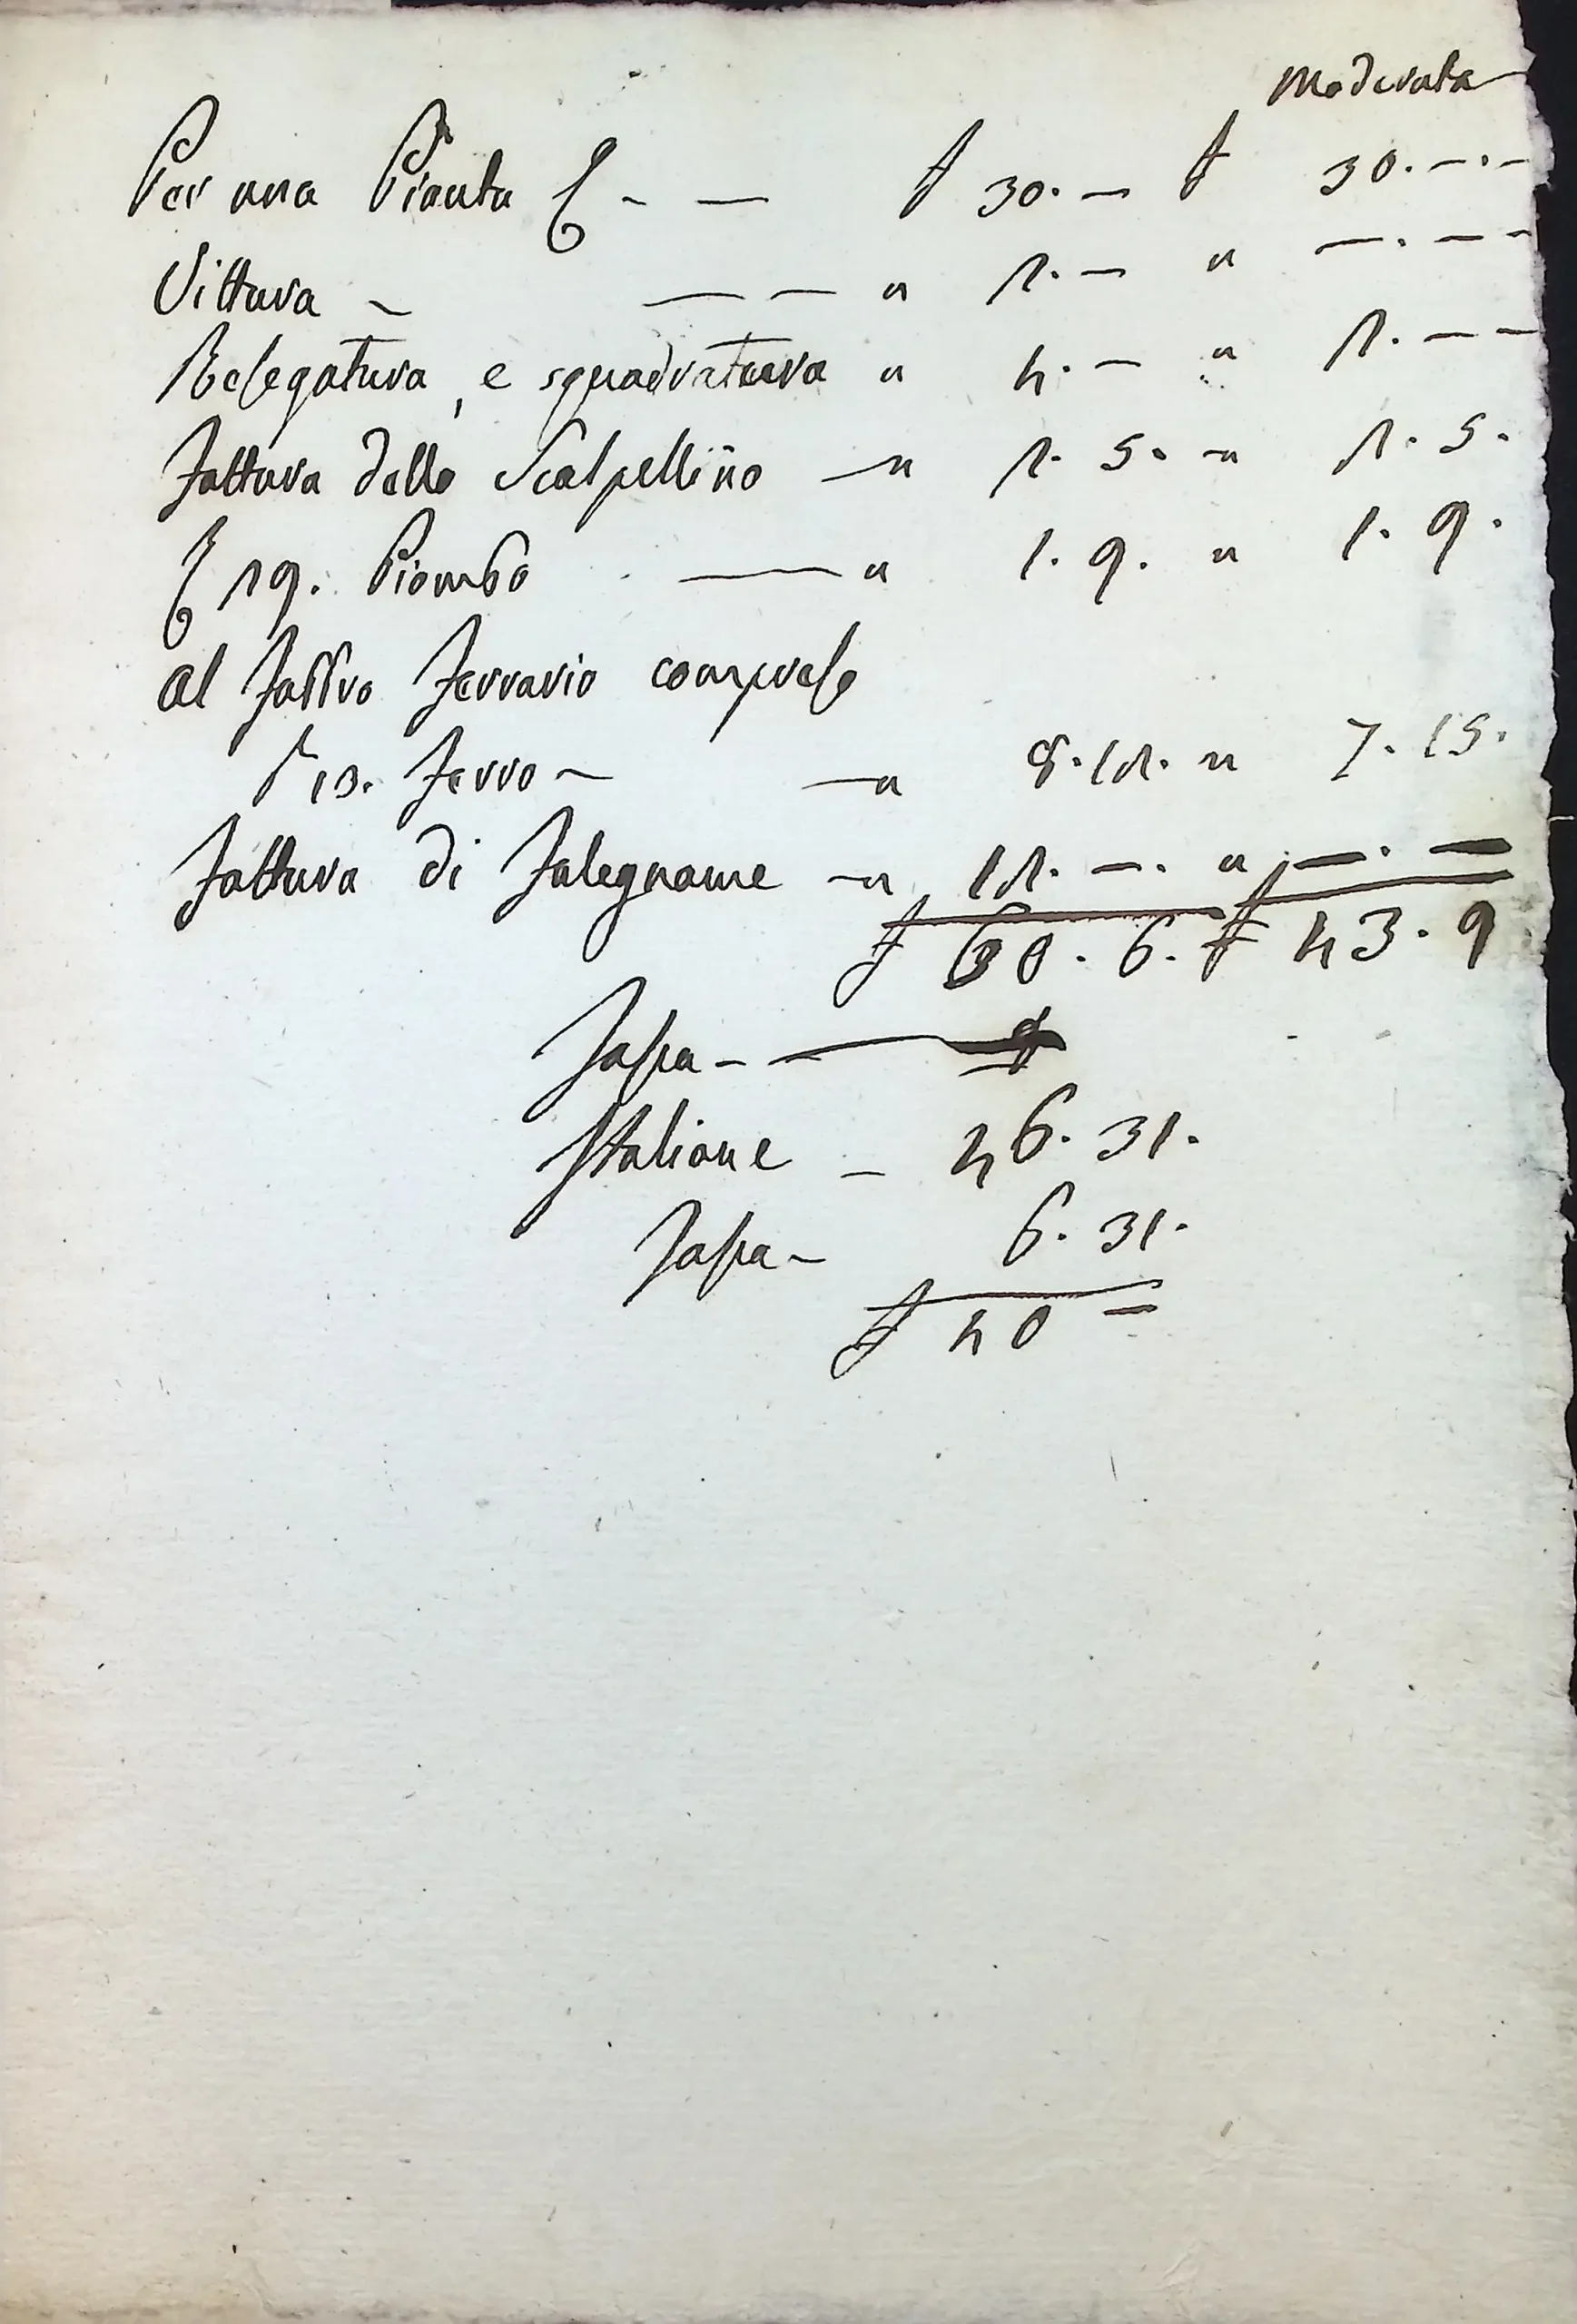 Moderata
Per una Pianta & - — £ 30. — £ 30. — . —
Vittura - — — " 2. — " — . — —
Resegatura, e squadratura " 4. — " 2. — —
Fattura dello Scalpellino — " 2. 5. — " 2. 5.
29. Piombo — " 1. 9. " 1. 9.
Al Fabbro Ferrario comprese
13. Ferro - — " 8. 12. " 7. 15.
Fattura di Falegname — " 12. — . " — . —
£ 60. 6. £ 43. 9
Tassa -
Italiane - 46. 31.
Tassa - 6. 31.
£ 40 =